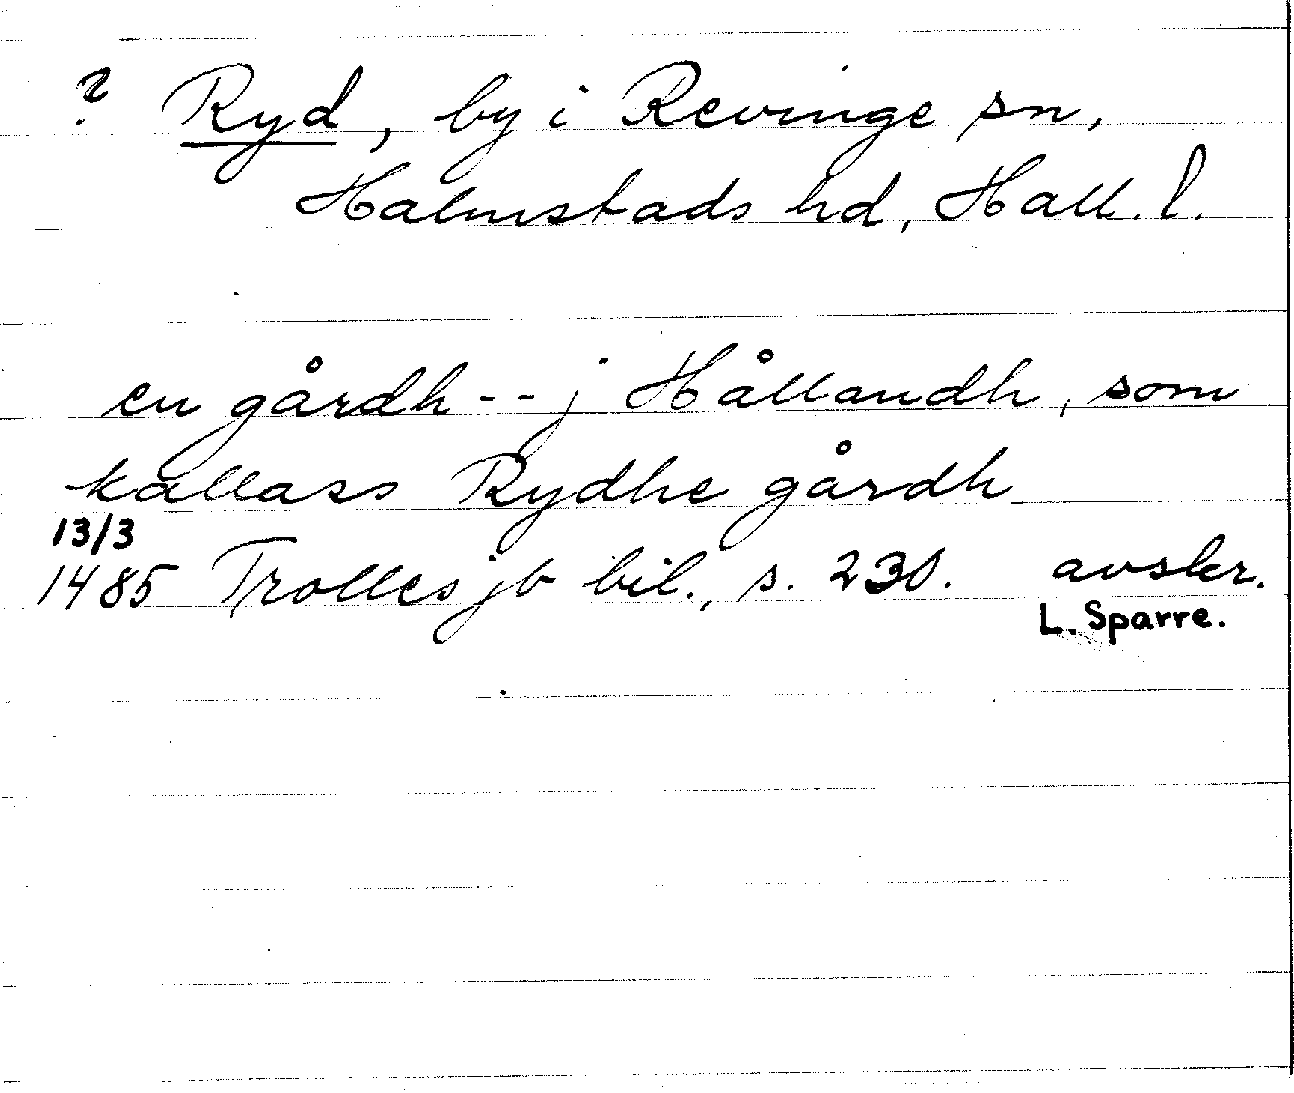 ? Ryd, by i Revinge sn,
Halmstads hd, Hall. l.
en gårdh -- j Hållandh, som
kallass Rydhe gårdh
13/3
1485 Trolles jb bil., s. 230. avskr.
L. Sparre.